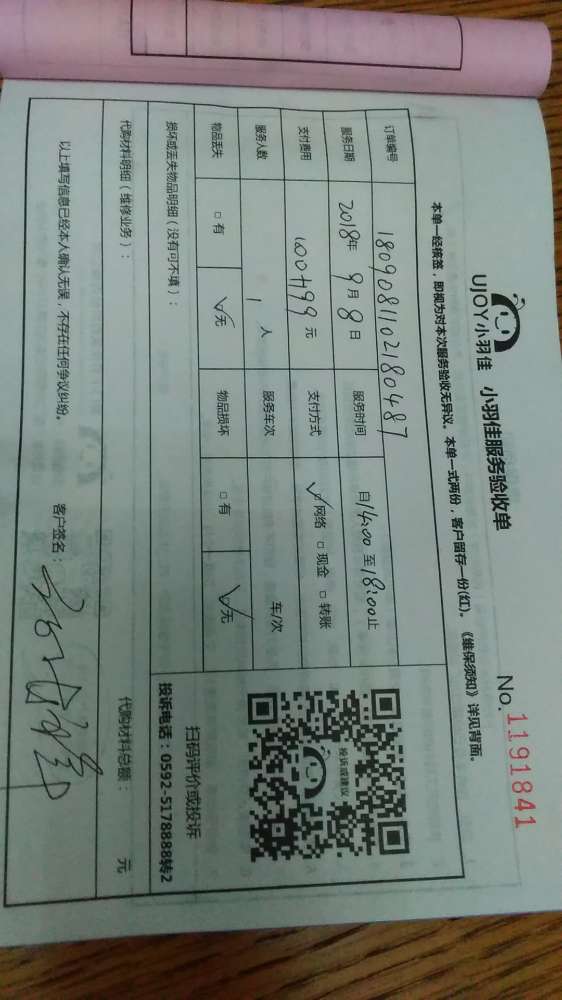 UJOY小羽佳 小羽佳服务验收单
No.1191841
本单一经核签，即视为对本次服务验收无异议。本单一式两份，客户留存一份(红)。《维保须知》详见背面。
订单编号 1809081102180487
服务日期 2018年 9月 8日 服务时间 自14:00 至18:00止
支付费用 元 支付方式 ✓网络 □现金 □转账
服务人数 1 人 服务车次 车/次
物品丢失 □有 ✓无 物品损坏 □有 ✓无
投诉或建议
扫码评价或投诉
投诉电话：0592-5178888转2
损坏或丢失物品明细（没有可不填）：
代购材料明细（维修业务）： 代购材料总额： 元
以上填写信息已经本人确认无误，不存在任何争议纠纷。 客户签名：